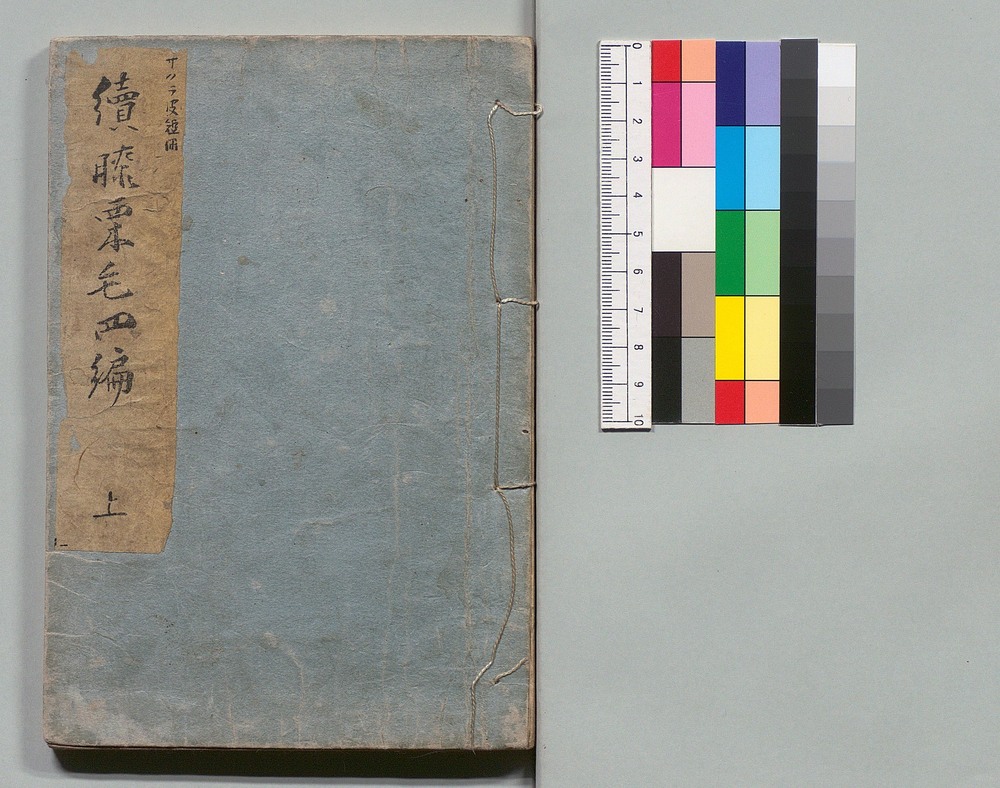 サクラ皮短冊
續膝栗毛四編
上
0
1
2
3
4
5
6
7
8
9
10